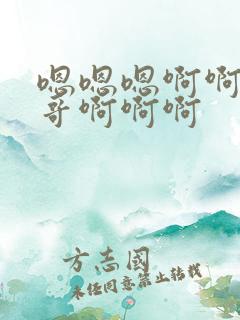 嗯嗯嗯啊啊
哥啊啊啊
方志國
未经同意禁止转载